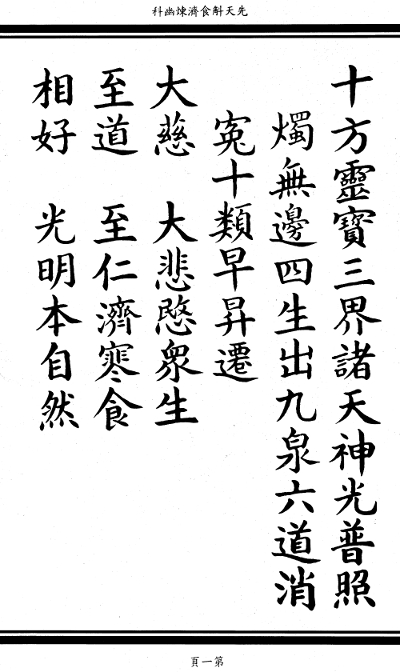 先天斛食濟煉幽科
十方靈寶三界諸天神光普照
燭無邊四生出九泉六道消
寃十類早昇遷
大慈 大悲愍衆生
至道 至仁濟寒食
相好 光明本自然
第一頁